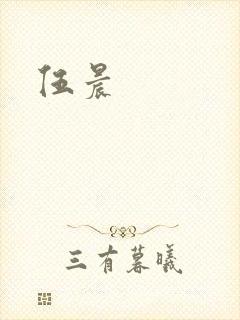 伍晨
三有暮曦